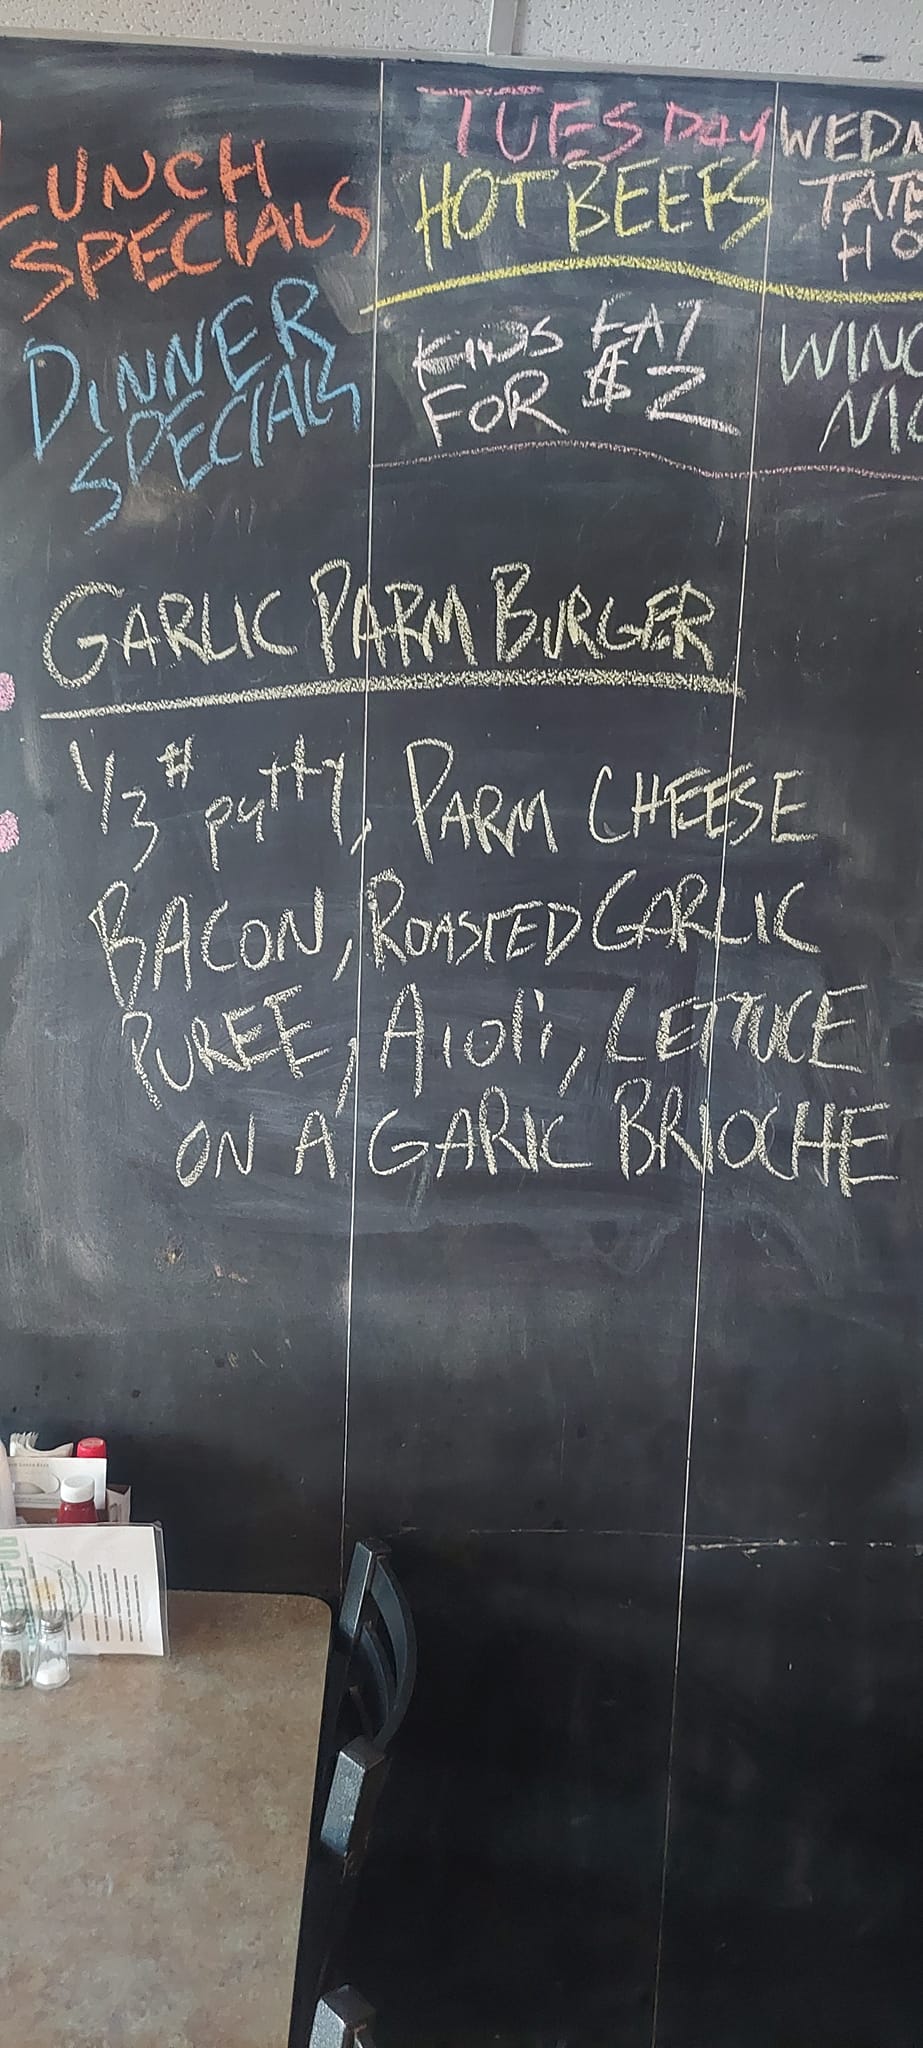 LUNCH
SPECIALS
TUESDAY
HOT BEEFS
WEDN
TATE
HO
DINNER
SPECIALS
KIDS EAT
FOR $2
WING
NIG
GARLIC PARM BURGER
1/3# patty, PARM CHEESE
BACON, ROASTED GARLIC
PUREE, Aioli, LETTUCE
ON A GARIC BRIOCHE